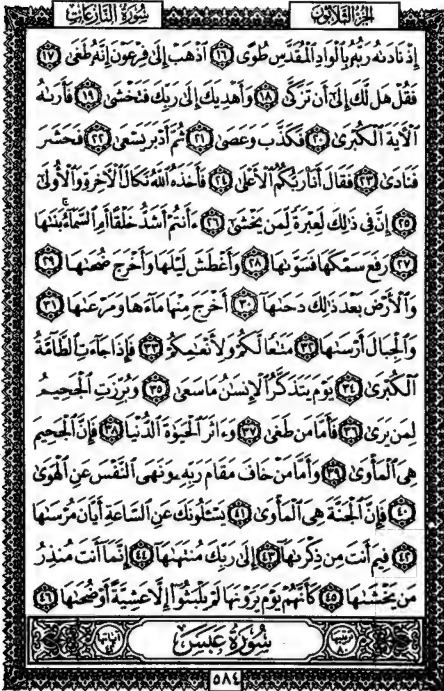 سُورَةُ النَّازِعَاتِ الجُزْءُ الثَّلَاثُونَ
إِذْ نَادَىٰهُ رَبُّهُۥ بِٱلْوَادِ ٱلْمُقَدَّسِ طُوًى ١٦ ٱذْهَبْ إِلَىٰ فِرْعَوْنَ إِنَّهُۥ طَغَىٰ ١٧
فَقُلْ هَل لَّكَ إِلَىٰٓ أَن تَزَكَّىٰ ١٨ وَأَهْدِيَكَ إِلَىٰ رَبِّكَ فَتَخْشَىٰ ١٩ فَأَرَىٰهُ
ٱلْأٓيَةَ ٱلْكُبْرَىٰ ٢٠ فَكَذَّبَ وَعَصَىٰ ٢١ ثُمَّ أَدْبَرَ يَسْعَىٰ ٢٢ فَحَشَرَ
فَنَادَىٰ ٢٣ فَقَالَ أَنَا۠ رَبُّكُمُ ٱلْأَعْلَىٰ ٢٤ فَأَخَذَهُ ٱللَّهُ نَكَالَ ٱلْأٓخِرَةِ وَٱلْأُولَىٰٓ
٢٥ إِنَّ فِى ذَٰلِكَ لَعِبْرَةً لِّمَن يَخْشَىٰٓ ٢٦ ءَأَنتُمْ أَشَدُّ خَلْقًا أَمِ ٱلسَّمَآءُ ۚ بَنَىٰهَا
٢٧ رَفَعَ سَمْكَهَا فَسَوَّىٰهَا ٢٨ وَأَغْطَشَ لَيْلَهَا وَأَخْرَجَ ضُحَىٰهَا ٢٩
وَٱلْأَرْضَ بَعْدَ ذَٰلِكَ دَحَىٰهَآ ٣٠ أَخْرَجَ مِنْهَا مَآءَهَا وَمَرْعَىٰهَا ٣١
وَٱلْجِبَالَ أَرْسَىٰهَا ٣٢ مَتَٰعًا لَّكُمْ وَلِأَنْعَٰمِكُمْ ٣٣ فَإِذَا جَآءَتِ ٱلطَّآمَّةُ
ٱلْكُبْرَىٰ ٣٤ يَوْمَ يَتَذَكَّرُ ٱلْإِنسَٰنُ مَا سَعَىٰ ٣٥ وَبُرِّزَتِ ٱلْجَحِيمُ
لِمَن يَرَىٰ ٣٦ فَأَمَّا مَن طَغَىٰ ٣٧ وَءَاثَرَ ٱلْحَيَوٰةَ ٱلدُّنْيَا ٣٨ فَإِنَّ ٱلْجَحِيمَ
هِىَ ٱلْمَأْوَىٰ ٣٩ وَأَمَّا مَنْ خَافَ مَقَامَ رَبِّهِۦ وَنَهَى ٱلنَّفْسَ عَنِ ٱلْهَوَىٰ
٤٠ فَإِنَّ ٱلْجَنَّةَ هِىَ ٱلْمَأْوَىٰ ٤١ يَسْـَٔلُونَكَ عَنِ ٱلسَّاعَةِ أَيَّانَ مُرْسَىٰهَا
٤٢ فِيمَ أَنتَ مِن ذِكْرَىٰهَآ ٤٣ إِلَىٰ رَبِّكَ مُنتَهَىٰهَآ ٤٤ إِنَّمَآ أَنتَ مُنذِرُ
مَن يَخْشَىٰهَا ٤٥ كَأَنَّهُمْ يَوْمَ يَرَوْنَهَا لَمْ يَلْبَثُوٓا۟ إِلَّا عَشِيَّةً أَوْ ضُحَىٰهَا ٤٦
سُورَةُ عَبَسَ
٥٨٤